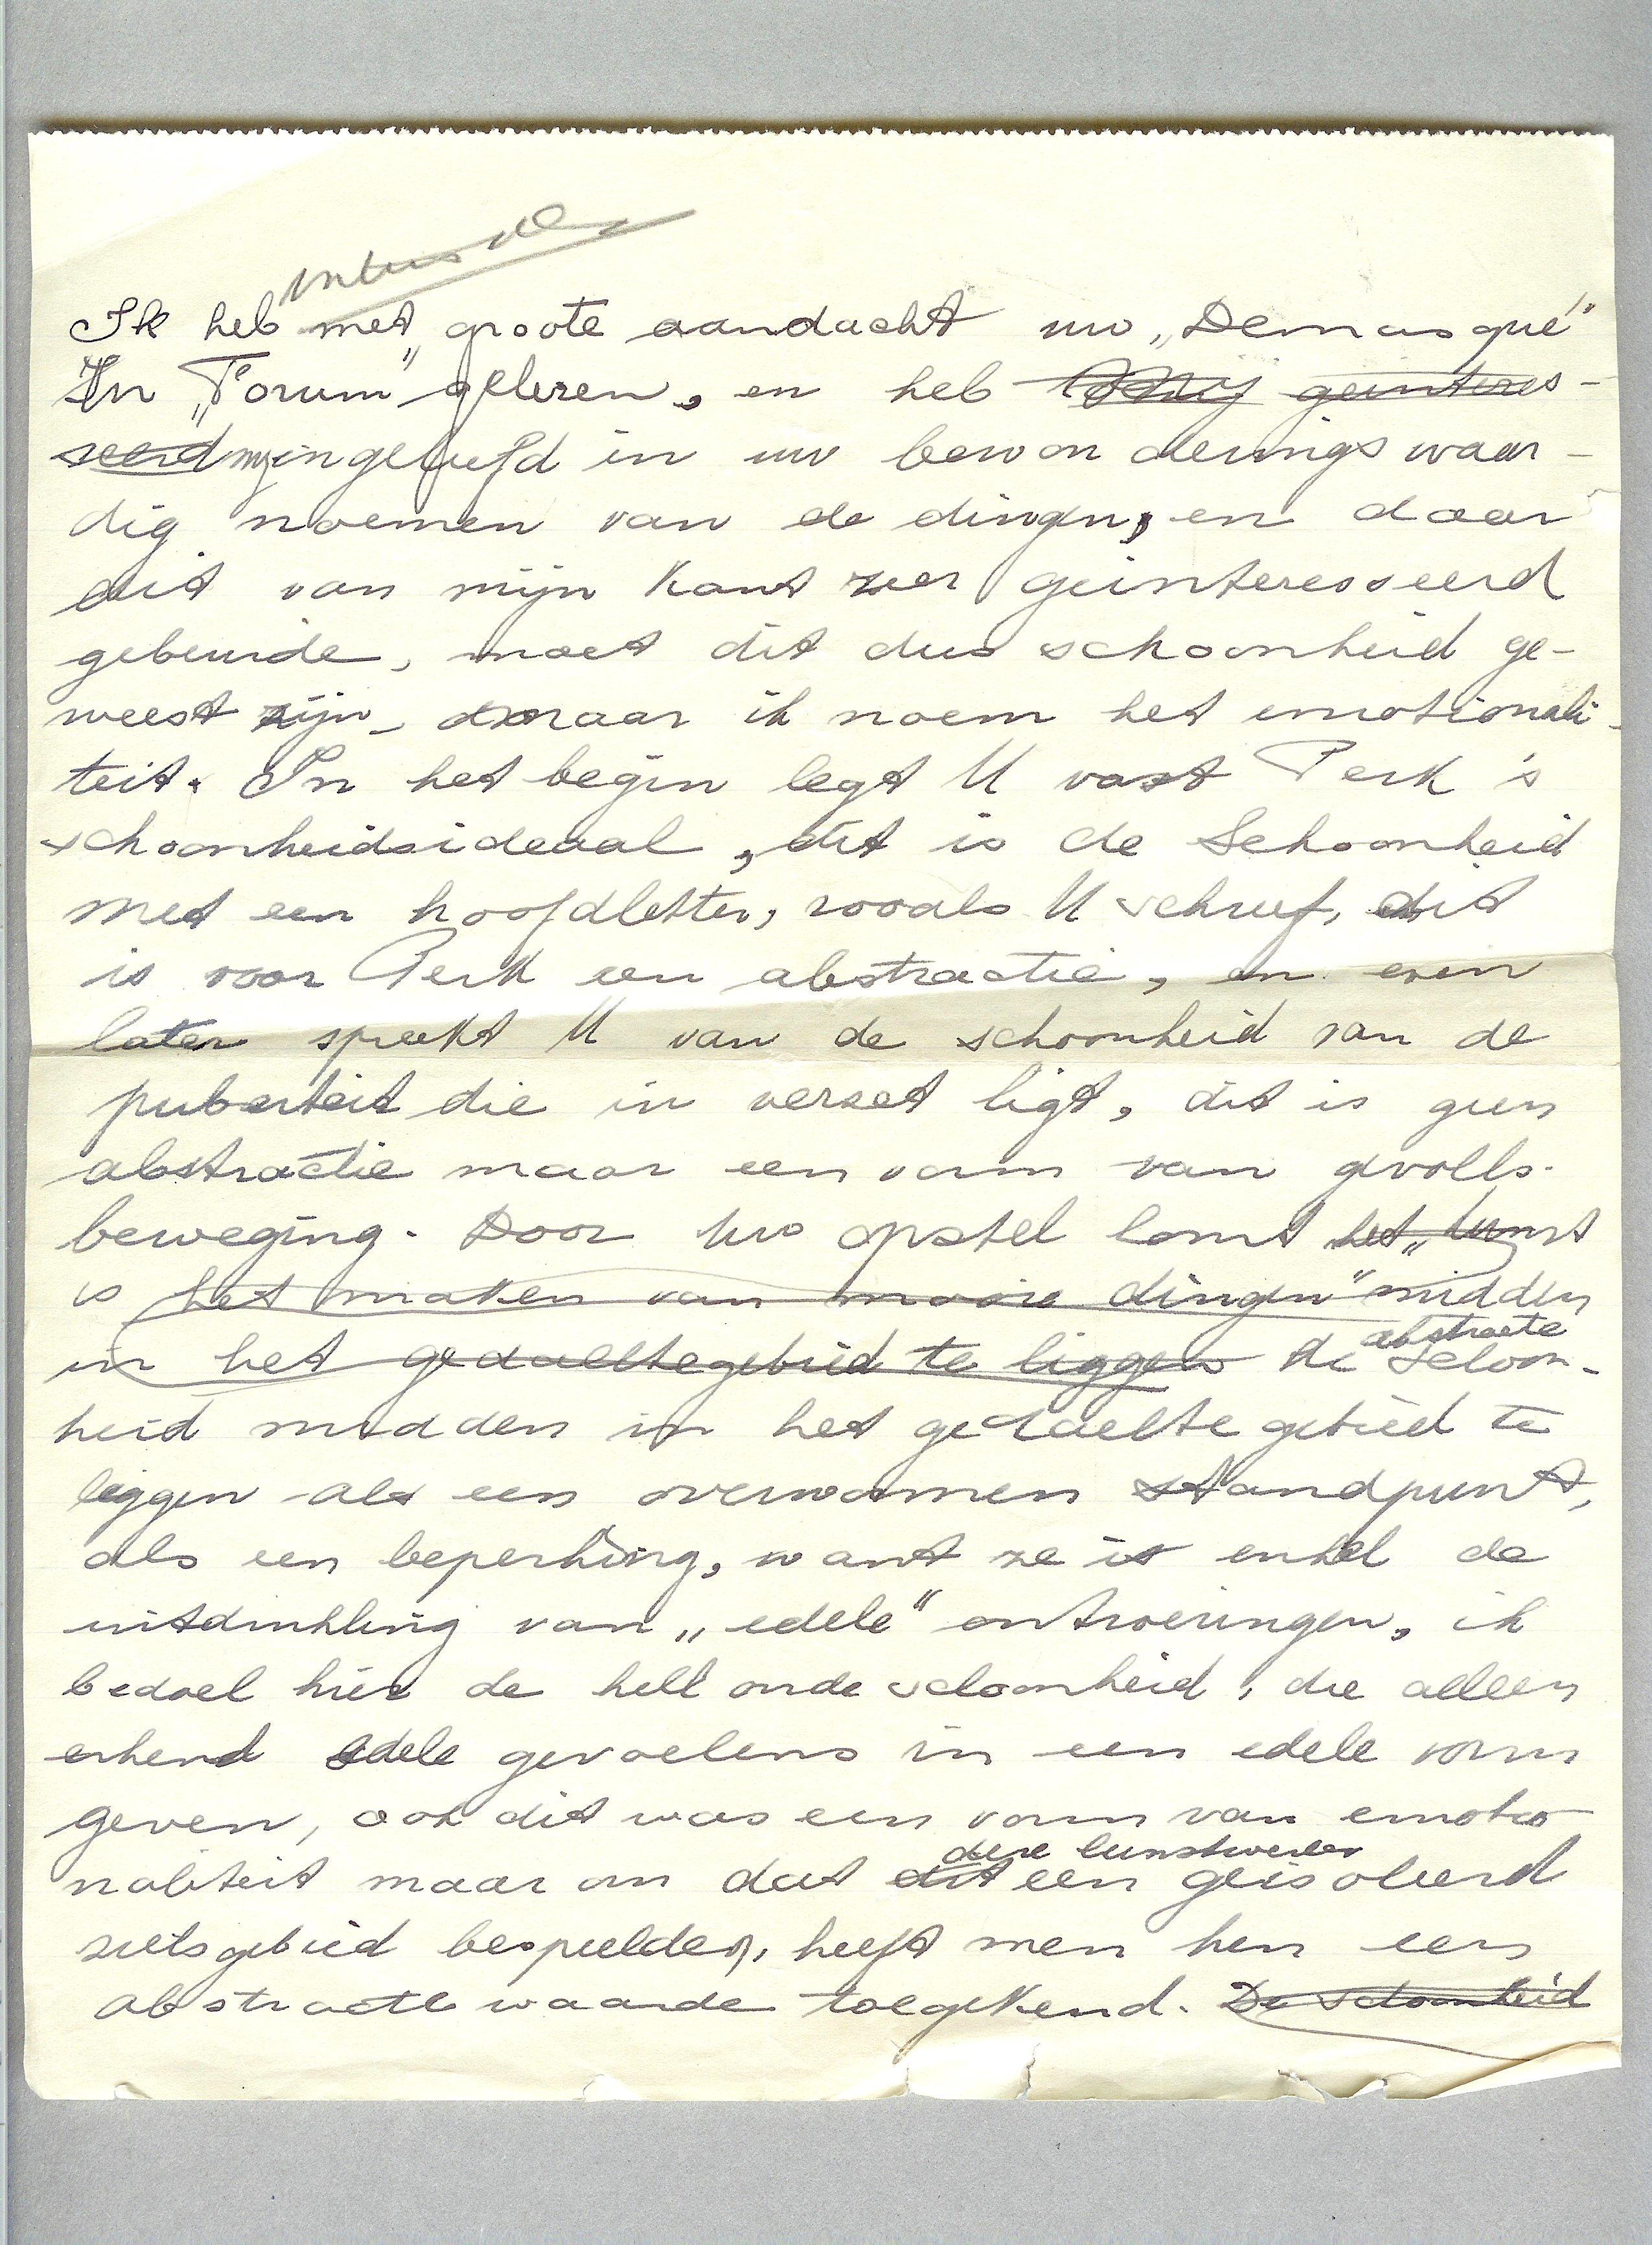 Ik heb met groote aandacht uw „Demasqué"
In „Forum" gelezen, en heb mij geinteres-
seerd mij ingeleefd in uw bewonderingswaar-
dig noemen van de dingen, en daar
dit van mijn kant zeer geinteresseerd
gebeurde, moet dit dus schoonheid ge-
weest zijn – maar ik noem het emotionali-
teit. In het begin legt U vast Perk's
schoonheidsideaal, dit is de Schoonheid
met een hoofdletter, zooals U schreef, dit
is voor Perk een abstractie, en even
later spreekt U van de schoonheid van de
puberteit die in verzet ligt, dit is geen
abstractie maar een vorm van gevoels-
beweging. Door uw opstel komt het „kunst
is het maken van mooie dingen" midden
in het gedaeltegebied te liggen de abstracte Schoon-
heid midden in het gedaeltegebied te
liggen als een overwonnen standpunt,
als een beperking, want ze is enkel de
uitdrukking van „edele" ontroeringen, ik
bedoel hier de held onde schoonheid, die alleen
erkend edele gevoelens in een edele vorm
geven, ook dit was een vorm van emotio-
naliteit maar om dat dit deze kunstwerken een geisoleerd
zielsgebied bespeelden, heeft men hen een
abstracte waarde toegekend. De schoonheid